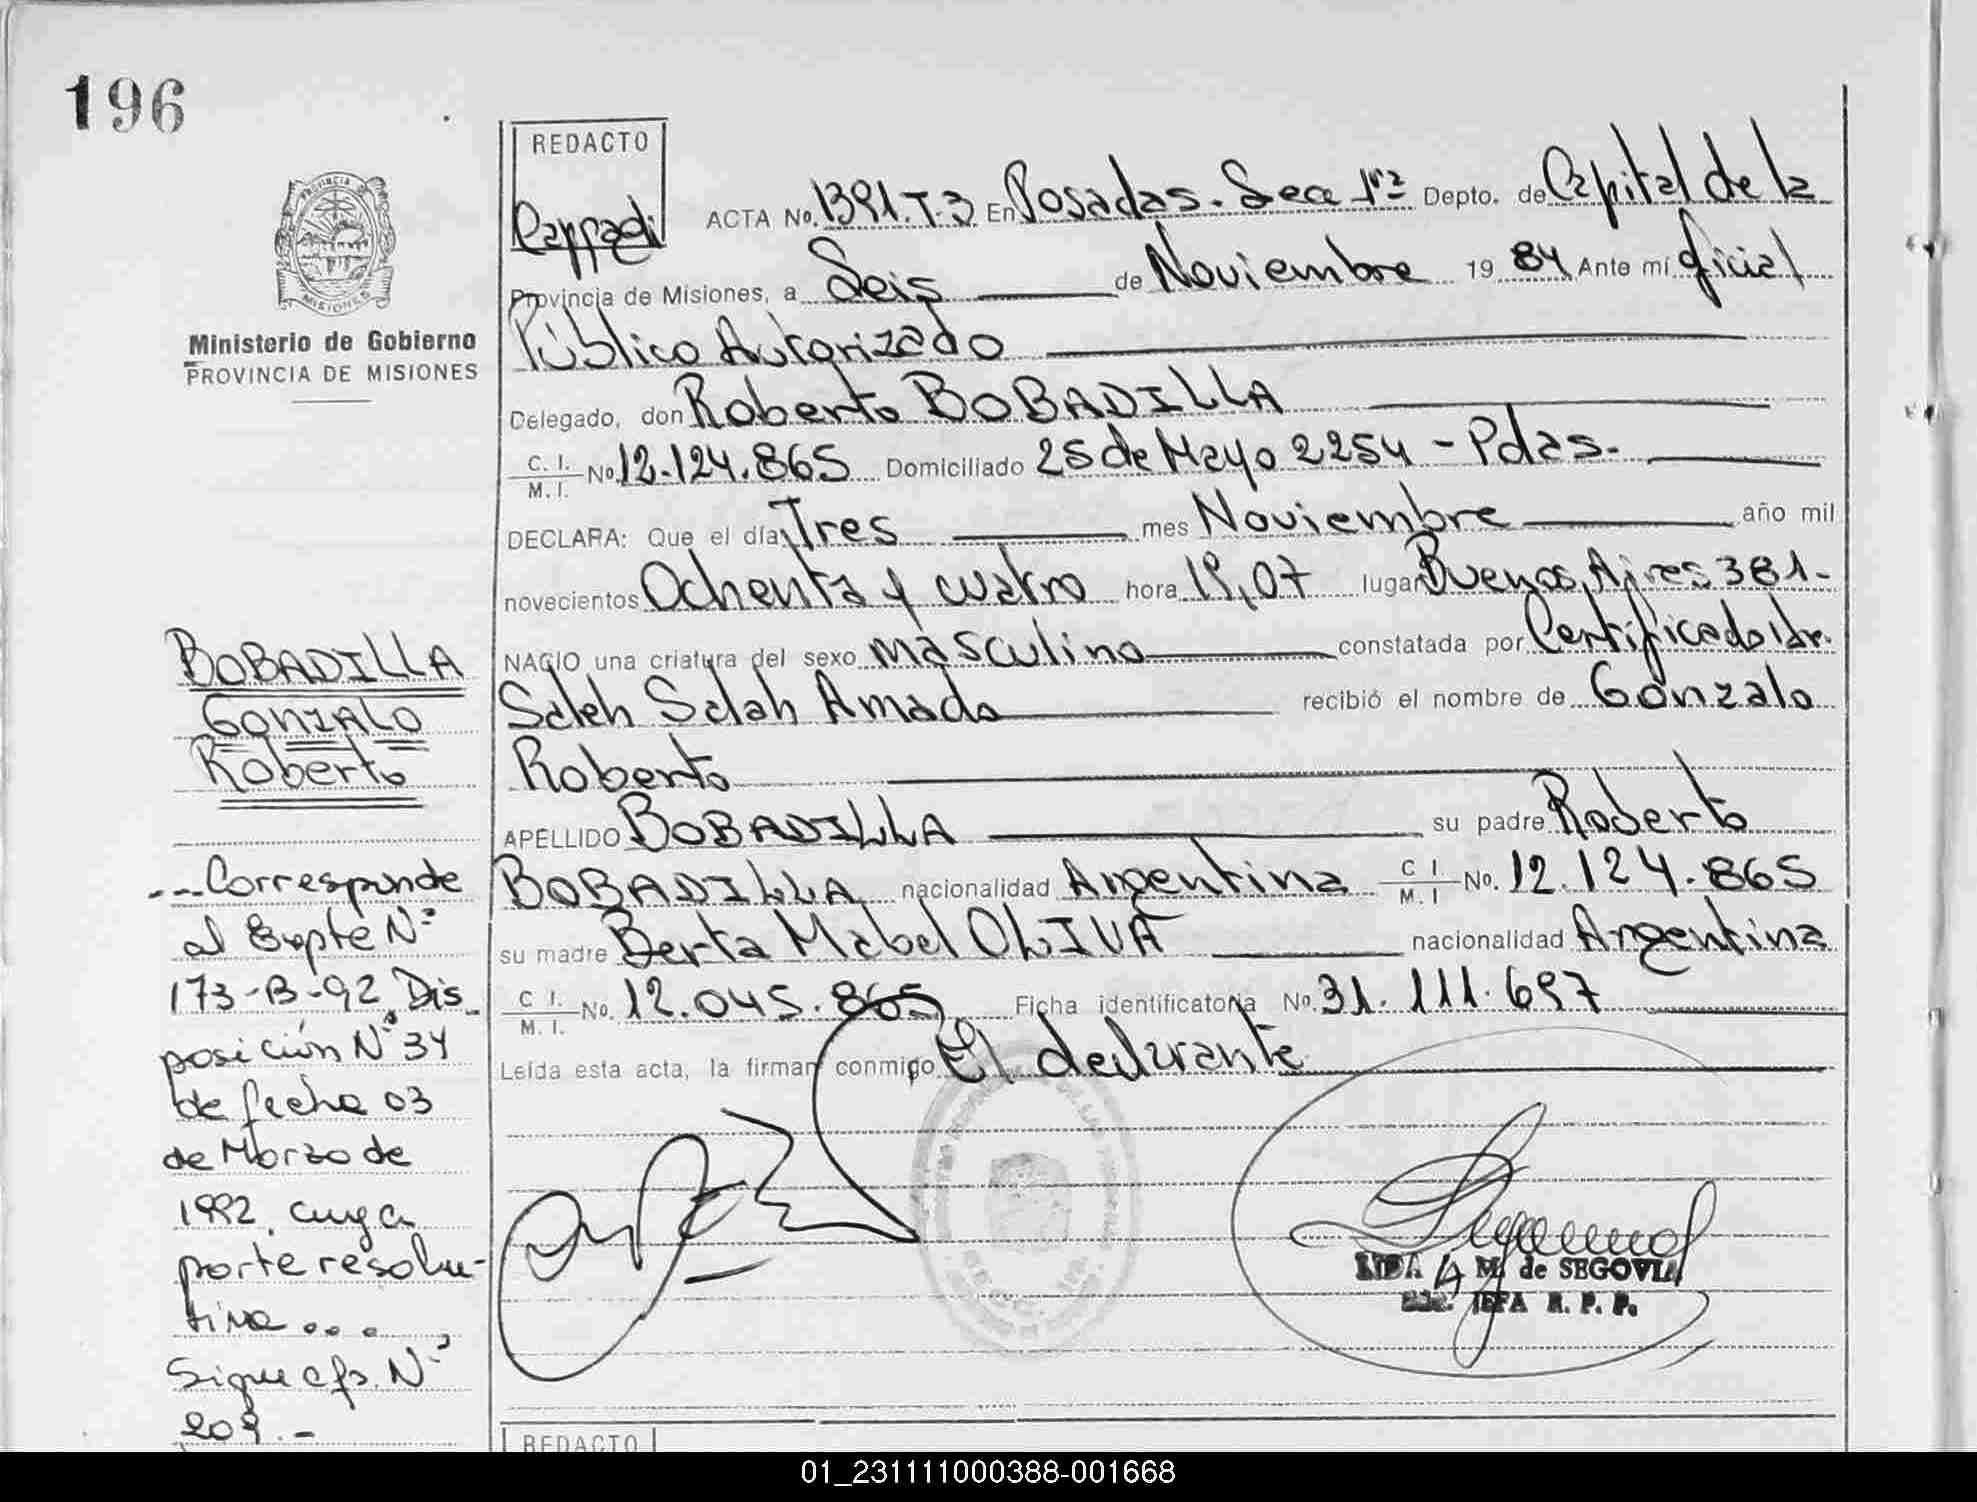 196
PROVINCIA DE
MISIONES
Ministerio de Gobierno
PROVINCIA DE MISIONES
BOBADILLA
GONZALO
Roberto
...Corresponde
al Expte Nº
173-B-92, Dis_
posición Nº 34
de fecha 03
de Marzo de
1992, cuya
parte resolu-
tiva ... ,
Sigue a fs. Nº
209.-
REDACTO
ACTA No. 1391.T.3 En Posadas. Secc 1ra Depto. de Capital de la
Provincia de Misiones, a Seis de Noviembre 1984 Ante mí Oficial
Público Autorizado
Delegado, don Roberto BOBADILLA
C. I. M. I. No. 12.124.865 Domiciliado 25 de Mayo 2254 - Pdas.
DECLARA: Que el día Tres mes Noviembre año mil
novecientos Ochenta y cuatro hora 19,07 lugar Buenos Aires 381-
NACIO una criatura del sexo masculino constatada por Certificado Dr.
Saleh Salah Amado recibió el nombre de Gonzalo
Roberto
APELLIDO BOBADILLA su padre Roberto
BOBADILLA nacionalidad Argentina C I. M. I No. 12.124.865
su madre Berta Mabel OLIVA nacionalidad Argentina
C I. M. I. No. 12.045.865 Ficha identificatoria No. 31.111.697
Leída esta acta, la firman conmigo El declarante
LIDA A. M. de SEGOVIA
JEFA R. P. P.
REDACTO
01_231111000388-001668